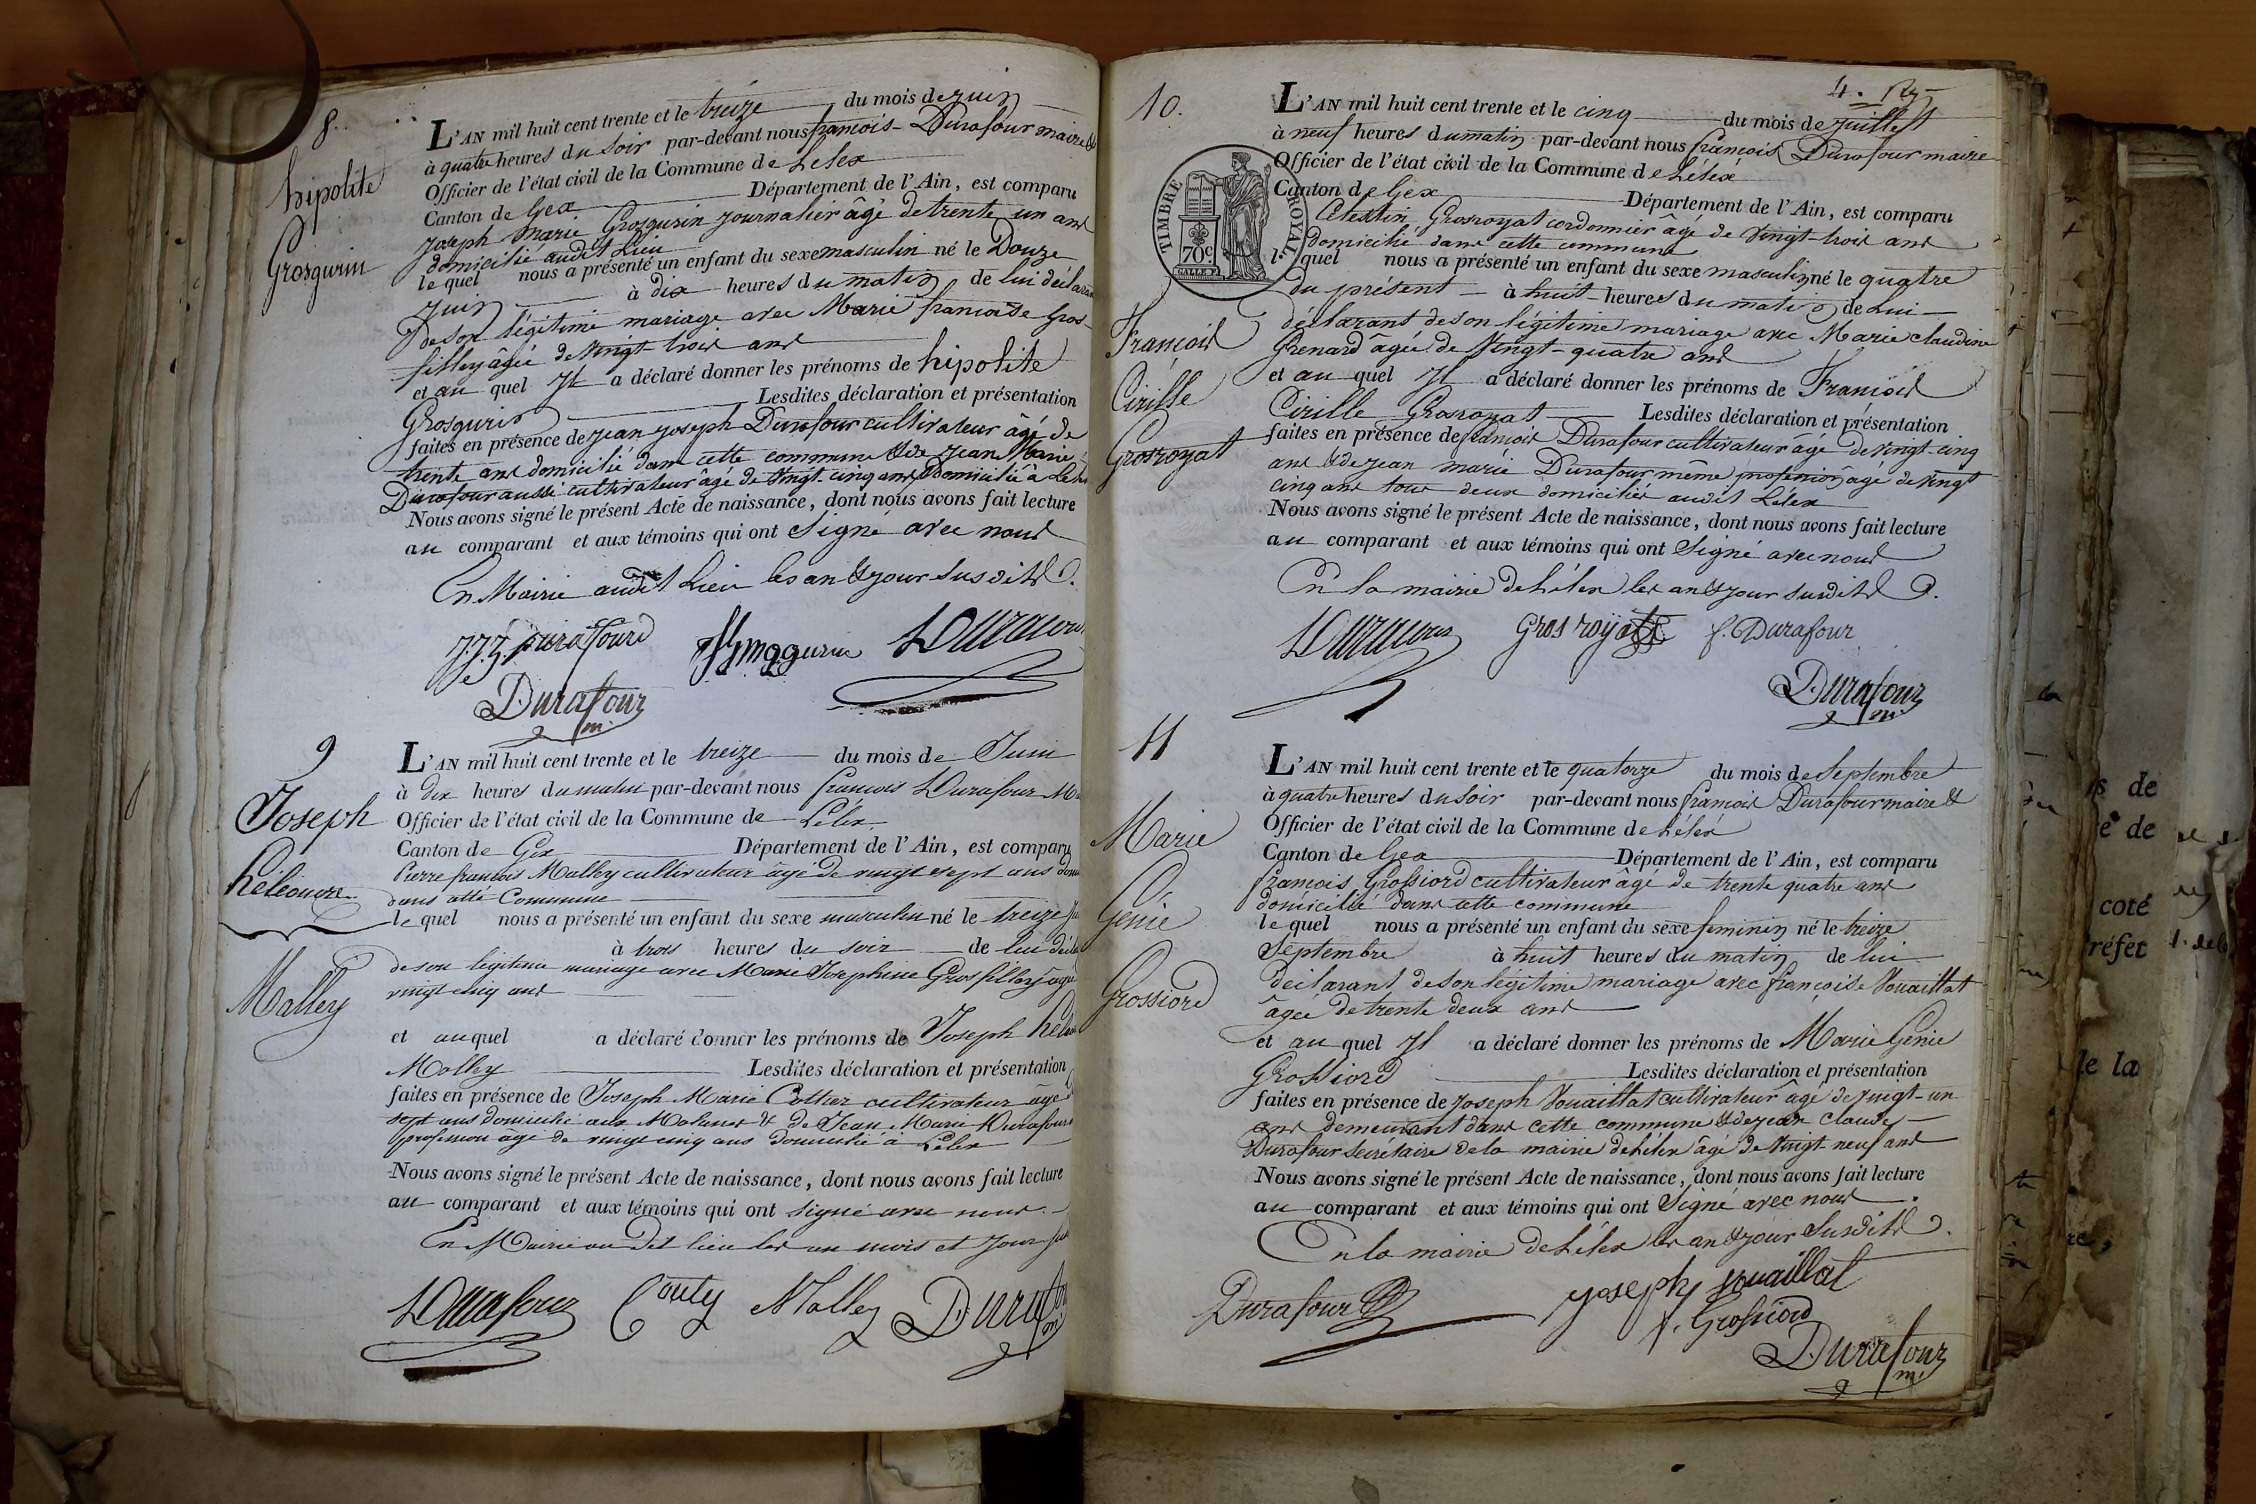 8.
hipolite
Grosgurin
L'AN mil huit cent trente et le treize du mois de juin
à quatre heures du soir par-devant nous françois Durafour maire &
Officier de l'état civil de la Commune de Lelex
Canton de Gex Département de l'Ain, est comparu
joseph marie Grosgurin journalier âgé de trente un ans
domicilié audit Lieu
le quel nous a présenté un enfant du sexe masculin né le Douze
juin à dix heures du matin de lui déclarant
De son légitime mariage avec Marie françoise Gros-
filley âgée de Vingt-trois ans
et au quel Il a déclaré donner les prénoms de hipolite
Grosgurin Lesdites déclaration et présentation
faites en présence de jean joseph Durafour cultivateur âgé de
trente ans domicilié dans cette commune & de jean Marie
Durafour aussi cultivateur âgé de Vingt-cinq ans Domicilié à
Nous avons signé le présent Acte de naissance, dont nous avons fait lecture
au comparant et aux témoins qui ont Signé avec nous
En Mairie audit Lieu les an & jour susdits.
J. J. Durafour Durafour
Durafour m.
9
Joseph
héléonore
Malley
L'AN mil huit cent trente et le treize du mois de Juin
à dix heures du matin par-devant nous françois Durafour
Officier de l'état civil de la Commune de Lélex
Canton de Gex Département de l'Ain, est comparu
Pierre françois Malley cultivateur âgé de vingt sept ans
dans cette Commune
le quel nous a présenté un enfant du sexe masculin né le treize
à trois heures du soir de lui
de son légitime mariage avec Marie Josephine Grosfilley âgée
vingt cinq ans
et auquel a déclaré donner les prénoms de Joseph
Malley Lesdites déclaration et présentation
faites en présence de Joseph Marie cultivateur âgé
sept ans domicilié aux & de Jean Marie Durafour
profession âgé de vingt cinq ans domicilié à Lélex
Nous avons signé le présent Acte de naissance, dont nous avons fait lecture
au comparant et aux témoins qui ont signé avec nous.
En Mairie au Dit lieu les an mois et jour
Durafour Couty Malley Durafour
4.
10.
TIMBRE ROYAL
70c
François
Cirille
Grosroyat
L'AN mil huit cent trente et le cinq du mois de juillet
à neuf heures du matin par-devant nous françois Durafour maire
Officier de l'état civil de la Commune de Lélex
Canton de Gex Département de l'Ain, est comparu
Célestin Grosroyat cordonnier âgé de Vingt-trois ans
domicilié dans cette commune
le quel nous a présenté un enfant du sexe masculin né le quatre
du présent à huit heures du matin de Lui
déclarant de son légitime mariage avec Marie claudine
Grenard âgée de Vingt-quatre ans
et au quel Il a déclaré donner les prénoms de François
Cirille Grosroyat Lesdites déclaration et présentation
faites en présence de françois Durafour cultivateur âgé de vingt-cinq
ans & de jean marie Durafour même profession âgé de vingt
cinq ans tous deux domiciliés audit Lélex
Nous avons signé le présent Acte de naissance, dont nous avons fait lecture
au comparant et aux témoins qui ont Signé avec nous
En la mairie de Lélex les an & jour susdits.
Durafour Gros royat f. Durafour
Durafour m.
11
Marie
Génie
Grossiord
L'AN mil huit cent trente et le quatorze du mois de Septembre
à quatre heures du soir par-devant nous françois Durafour maire &
Officier de l'état civil de la Commune de Lélex
Canton de Gex Département de l'Ain, est comparu
françois Grossiord cultivateur âgé de trente quatre ans
domicilié dans cette commune
le quel nous a présenté un enfant du sexe feminin né le treize
Septembre à huit heures du matin de lui
déclarant de son légitime mariage avec françoise Vouaillat
âgée de trente deux ans
et au quel Il a déclaré donner les prénoms de Marie Génie
Grossiord Lesdites déclaration et présentation
faites en présence de joseph Vouaillat cultivateur âgé de vingt-un
ans demeurant dans cette commune & de jean claude
Durafour secrétaire de la mairie de Lélex âgé de Vingt neuf ans
Nous avons signé le présent Acte de naissance, dont nous avons fait lecture
au comparant et aux témoins qui ont Signé avec nous.
En la mairie de Lélex les an & jour Susdits.
Durafour joseph vouaillat
f. Grossiord
Durafour m.
de
de
coté
réfet
de la